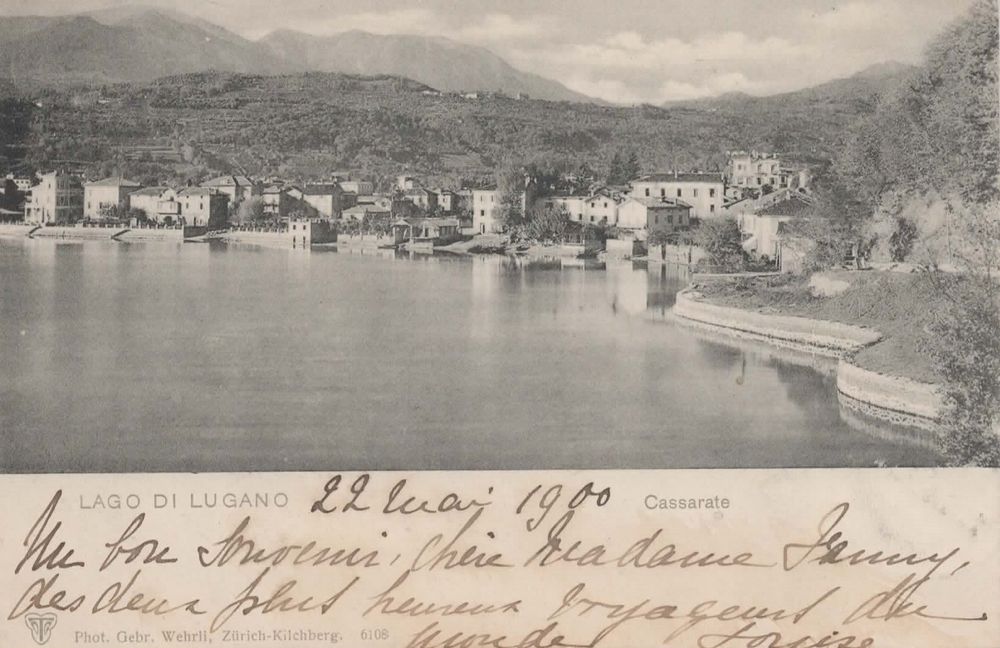 LAGO DI LUGANO 22 Mai 1900 Cassarate
Un bon Souvenir, chère Madame Fanny,
des deux plus heureux voyageurs du
monde Louise
Phot. Gebr. Wehrli, Zürich-Kilchberg. 6108